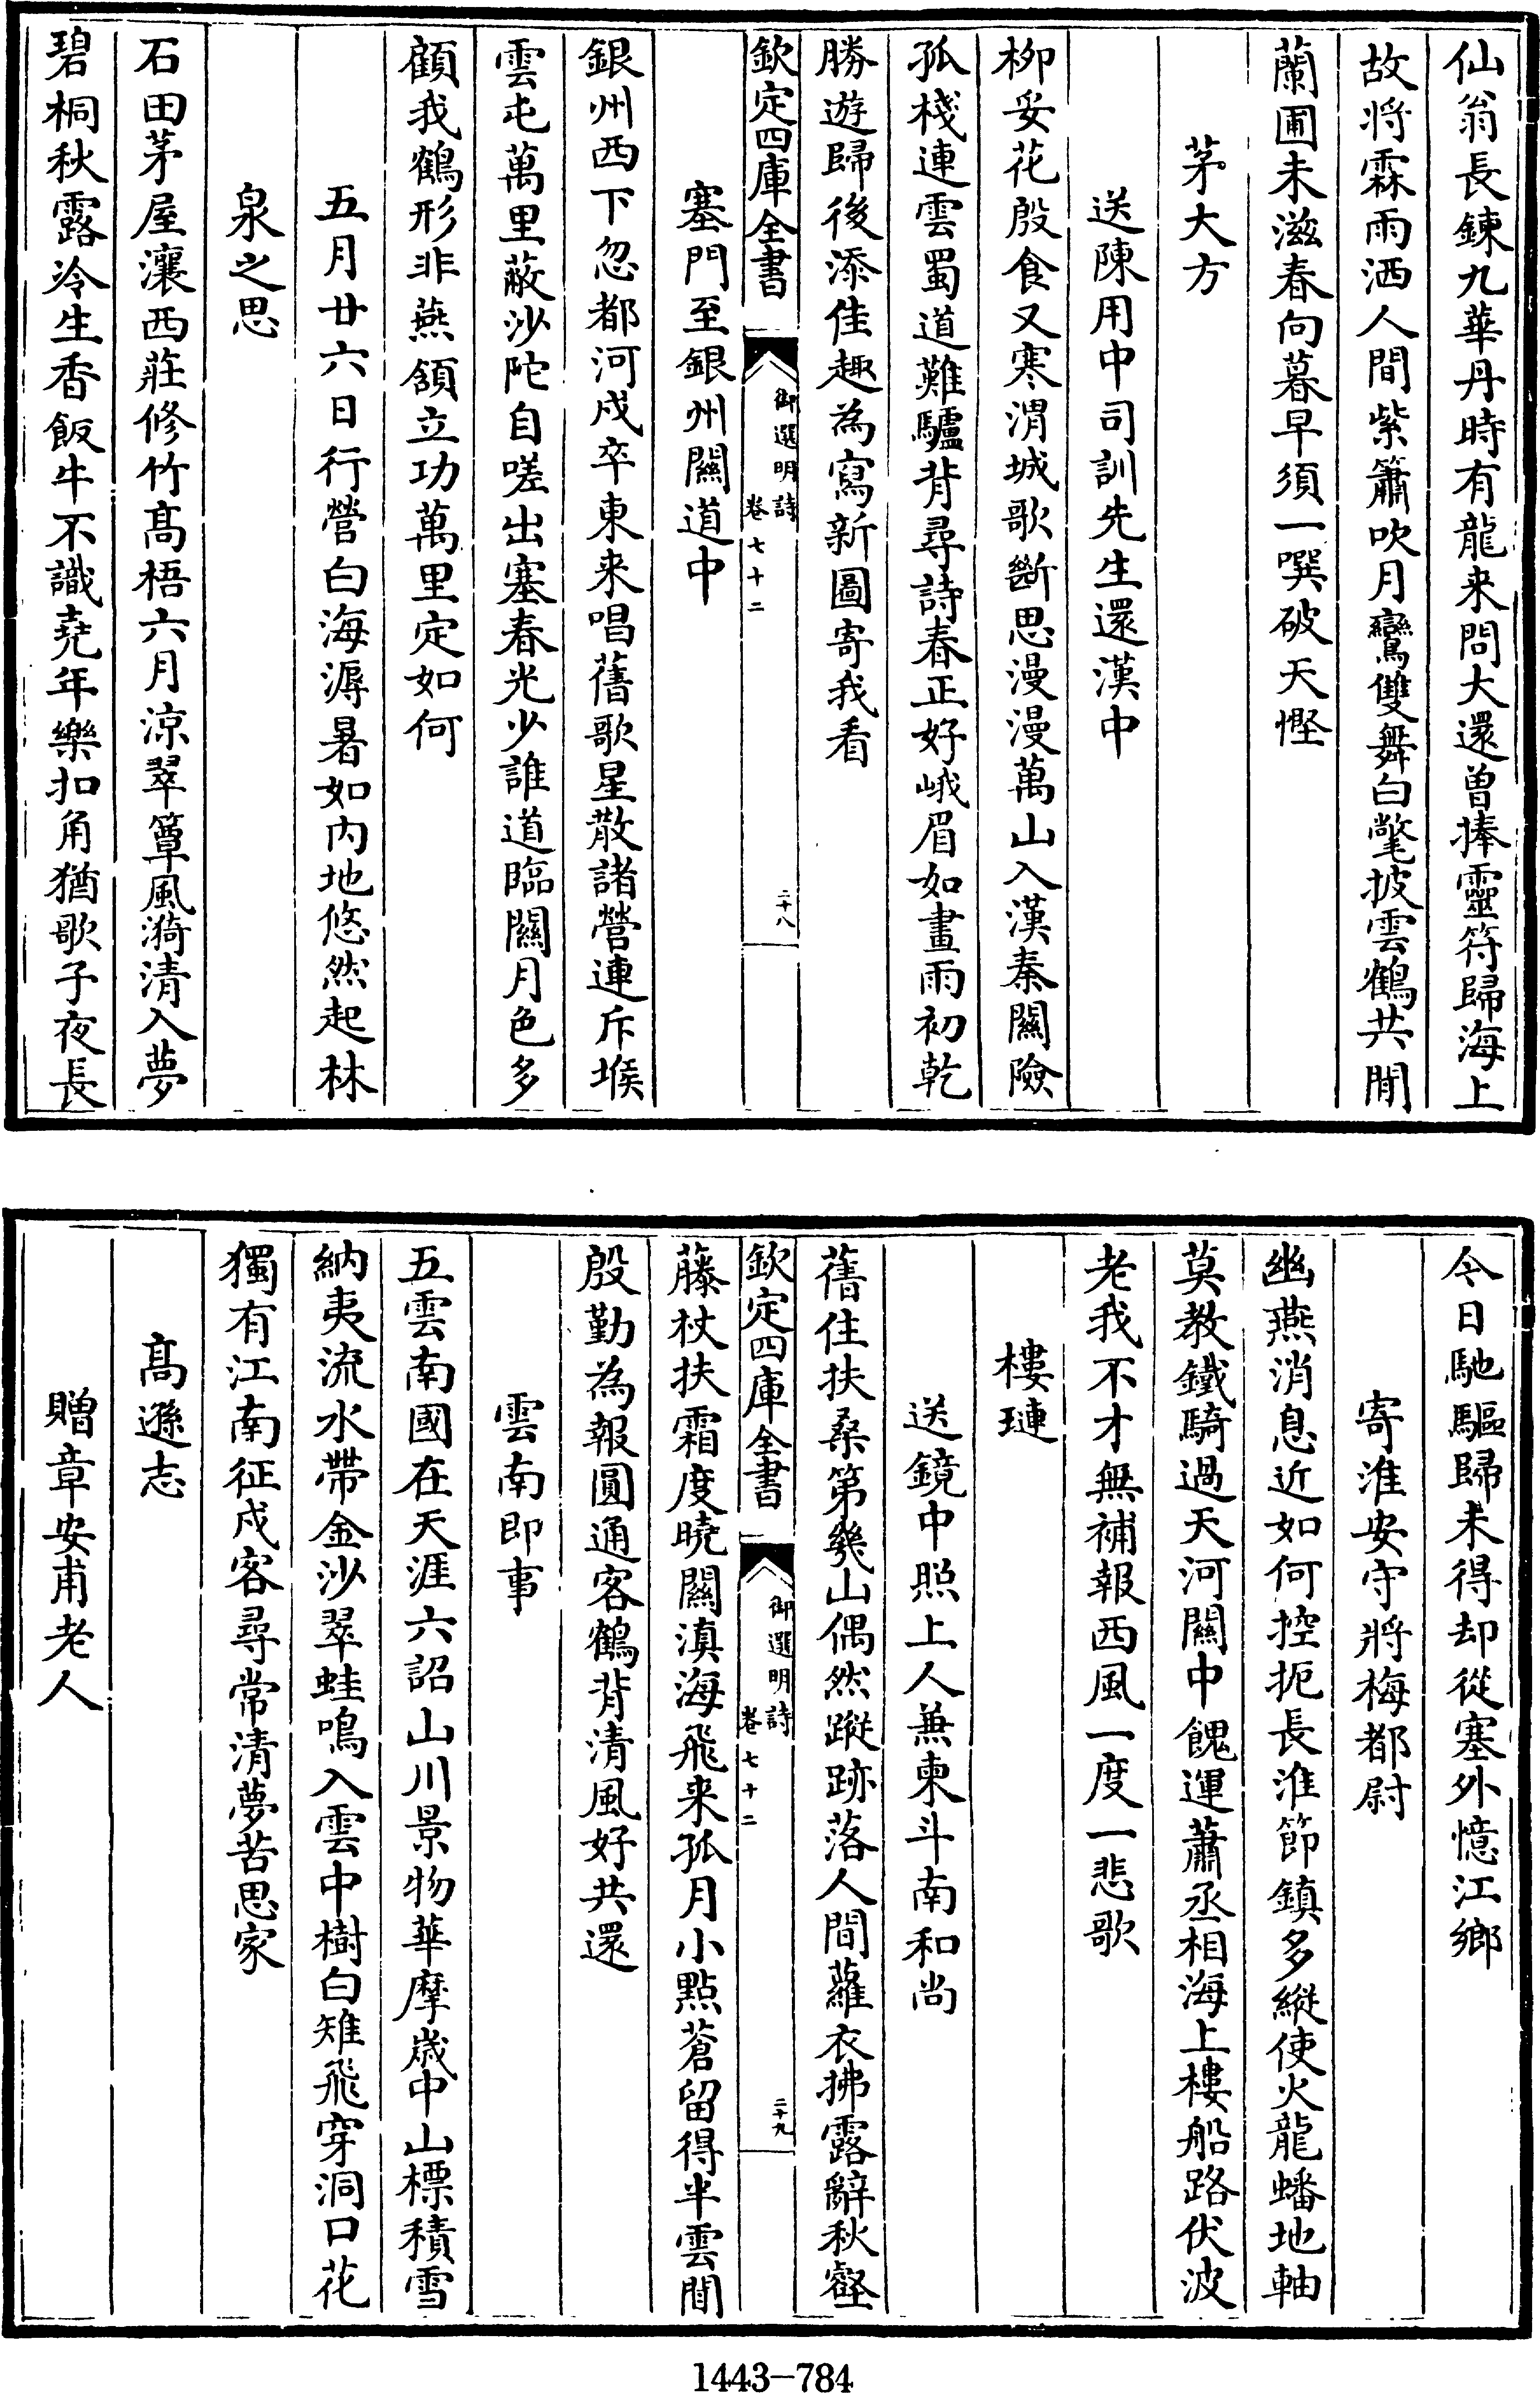 仙翁長鍊九華丹時有龍来問大還曽捧靈符歸海上
故將霖雨洒人間紫簫吹月鸞雙舞白氅披雲鶴共閒
蘭圃未滋春向暮早須一噀破天慳
茅大方
送陳用中司訓先生還漢中
栁妥花殷食又寒渭城歌斷思漫漫萬山入漢秦關險
孤棧連雲蜀道難驢背尋詩春正好峨眉如畫雨初乾
勝遊歸後添佳趣為寫新圖寄我看
欽定四庫全書
御選明詩
卷七十二
二十八
塞門至銀州關道中
銀州西下忽都河戍卒東来唱舊歌星散諸營連斥堠
雲屯萬里蔽沙陀自嗟出塞春光少誰道臨關月色多
顧我鶴形非燕頷立功萬里定如何
五月廿六日行營白海溽暑如内地悠然起林
泉之思
石田茅屋瀼西莊修竹髙梧六月涼翠簟風漪清入夢
碧桐秋露冷生香飯牛不識堯年樂扣角猶歌子夜長
今日馳驅歸未得却從塞外憶江鄉
寄淮安守將梅都尉
幽燕消息近如何控扼長淮節鎮多縱使火龍蟠地軸
莫教鐵騎過天河關中餽運蕭丞相海上樓船路伏波
老我不才無補報西風一度一悲歌
樓璉
送鏡中照上人兼柬斗南和尚
舊住扶桑第幾山偶然蹤跡落人間蘿衣拂露辭秋壑
欽定四庫全書
御選明詩
卷七十二
二十九
藤杖扶霜度曉關滇海飛来孤月小點蒼留得半雲閒
殷勤為報圓通客鶴背清風好共還
雲南即事
五雲南國在天涯六詔山川景物華摩歲中山標積雪
納夷流水帶金沙翠蛙鳴入雲中樹白雉飛穿洞口花
獨有江南征戍客尋常清夢苦思家
髙遜志
贈章安甫老人
1443-784